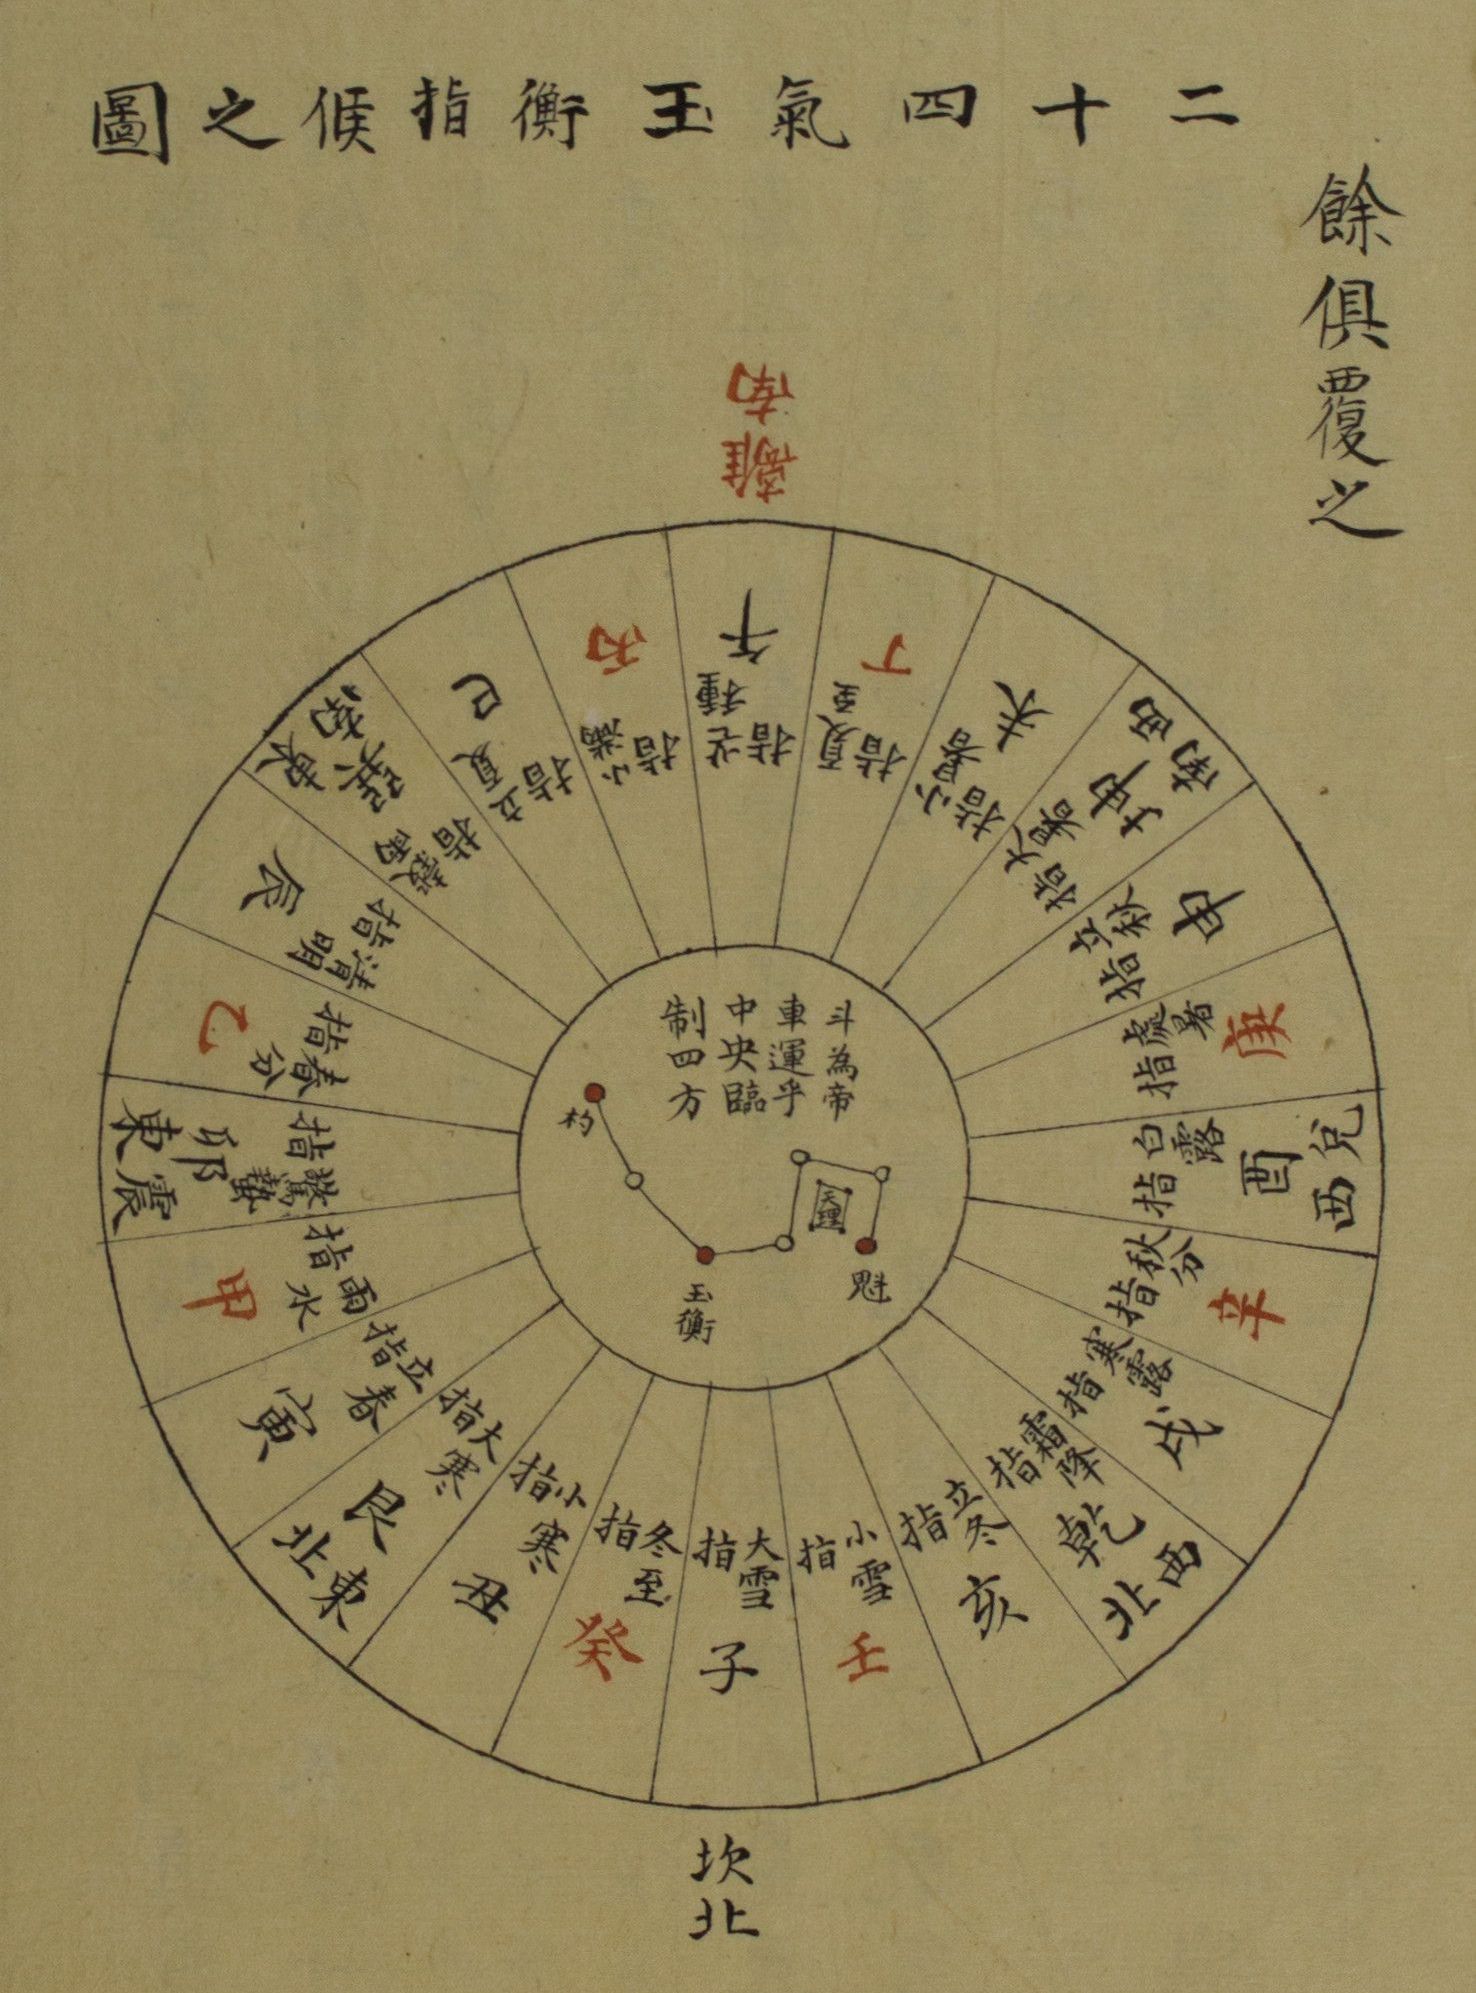 二十四氣玉衡指候之圖
餘俱覆之
離南
午
指芒種
丁
指夏至
未
指小暑
坤
西南
指大暑
申
指立秋
庚
指處暑
兌西
酉
指白露
辛
指秋分
戌
指寒露
乾
西北
指霜降
亥
指立冬
壬
指小雪
子
指大雪
坎北
癸
指冬至
丑
指小寒
艮
東北
指大寒
寅
指立春
甲
指雨水
東震
卯
指驚蟄
乙
指春分
辰
指清明
巽
東南
指穀雨
巳
指立夏
丙
指小滿
斗為帝
車運乎
中央臨
制四方
杓
玉衡
魁
天理